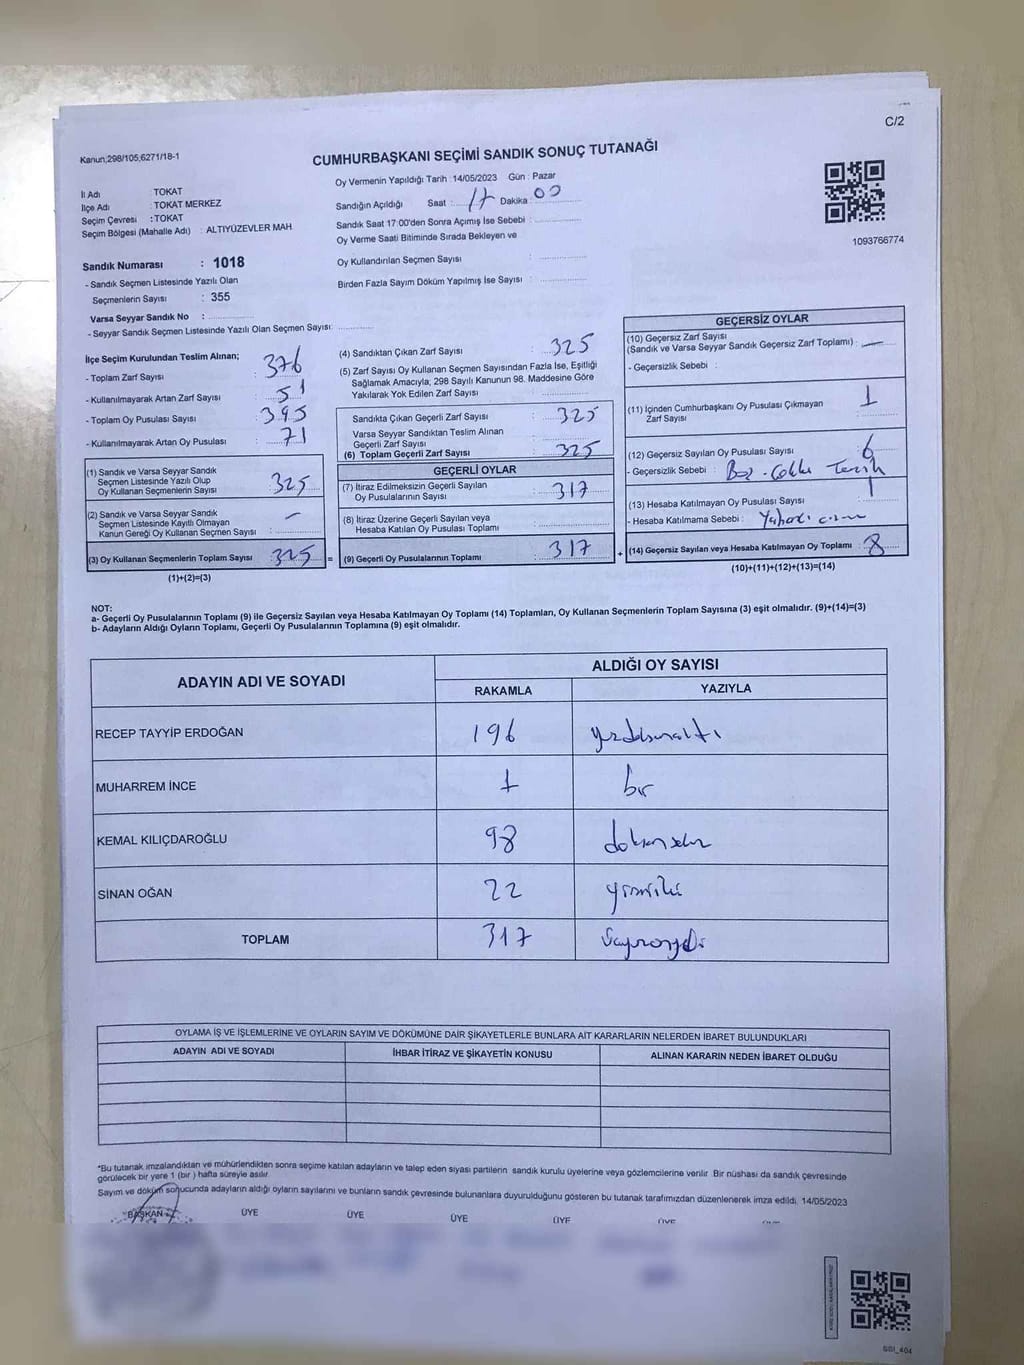 C/2
Kanun;298/105;6271/18-1
CUMHURBAŞKANI SEÇİMİ SANDIK SONUÇ TUTANAĞI
İl Adı : TOKAT
İlçe Adı : TOKAT MERKEZ
Seçim Çevresi : TOKAT
Seçim Bölgesi (Mahalle Adı) : ALTIYÜZEVLER MAH
Oy Vermenin Yapıldığı Tarih : 14/05/2023 Gün : Pazar
Sandığın Açıldığı Saat : 17 Dakika : 00
Sandık Saat 17:00'den Sonra Açımış İse Sebebi :
Oy Verme Saati Bitiminde Sırada Bekleyen ve
Oy Kullandırılan Seçmen Sayısı :
Birden Fazla Sayım Döküm Yapılmış İse Sayısı :
1093766774
Sandık Numarası : 1018
- Sandık Seçmen Listesinde Yazılı Olan
Seçmenlerin Sayısı : 355
Varsa Seyyar Sandık No :
- Seyyar Sandık Seçmen Listesinde Yazılı Olan Seçmen Sayısı:
İlçe Seçim Kurulundan Teslim Alınan;
- Toplam Zarf Sayısı : 376
- Kullanılmayarak Artan Zarf Sayısı : 51
- Toplam Oy Pusulası Sayısı : 395
- Kullanılmayarak Artan Oy Pusulası : 71
(1) Sandık ve Varsa Seyyar Sandık
Seçmen Listesinde Yazılı Olup
Oy Kullanan Seçmenlerin Sayısı : 325
(2) Sandık ve Varsa Seyyar Sandık
Seçmen Listesinde Kayıtlı Olmayan
Kanun Gereği Oy Kullanan Seçmen Sayısı : -
(3) Oy Kullanan Seçmenlerin Toplam Sayısı : 325 =
(1)+(2)=(3)
(4) Sandıktan Çıkan Zarf Sayısı : 325
(5) Zarf Sayısı Oy Kullanan Seçmen Sayısından Fazla İse, Eşitliği
Sağlamak Amacıyla; 298 Sayılı Kanunun 98. Maddesine Göre
Yakılarak Yok Edilen Zarf Sayısı :
Sandıkta Çıkan Geçerli Zarf Sayısı : 325
Varsa Seyyar Sandıktan Teslim Alınan
Geçerli Zarf Sayısı :
(6) Toplam Geçerli Zarf Sayısı : 325
GEÇERLİ OYLAR
(7) İtiraz Edilmeksizin Geçerli Sayılan
Oy Pusulalarının Sayısı : 317
(8) İtiraz Üzerine Geçerli Sayılan veya
Hesaba Katılan Oy Pusulası Toplamı :
(9) Geçerli Oy Pusulalarının Toplamı : 317 +
GEÇERSİZ OYLAR
(10) Geçersiz Zarf Sayısı
(Sandık ve Varsa Seyyar Sandık Geçersiz Zarf Toplamı) : -
- Geçersizlik Sebebi :
(11) İçinden Cumhurbaşkanı Oy Pusulası Çıkmayan
Zarf Sayısı : 1
(12) Geçersiz Sayılan Oy Pusulası Sayısı : 6
- Geçersizlik Sebebi : Boş - Çoklu Tercih
(13) Hesaba Katılmayan Oy Pusulası Sayısı : 1
- Hesaba Katılmama Sebebi :
(14) Geçersiz Sayılan veya Hesaba Katılmayan Oy Toplamı : 8
(10)+(11)+(12)+(13)=(14)
NOT:
a- Geçerli Oy Pusulalarının Toplamı (9) ile Geçersiz Sayılan veya Hesaba Katılmayan Oy Toplamı (14) Toplamları, Oy Kullanan Seçmenlerin Toplam Sayısına (3) eşit olmalıdır. (9)+(14)=(3)
b- Adayların Aldığı Oyların Toplamı, Geçerli Oy Pusulalarının Toplamına (9) eşit olmalıdır.
ADAYIN ADI VE SOYADI ALDIĞI OY SAYISI
RAKAMLA YAZIYLA
RECEP TAYYİP ERDOĞAN 196 yüzdoksanaltı
MUHARREM İNCE 1 bir
KEMAL KILIÇDAROĞLU 98 doksansekiz
SİNAN OĞAN 22 yirmiiki
TOPLAM 317 üçyüzonyedi
OYLAMA İŞ VE İŞLEMLERİNE VE OYLARIN SAYIM VE DÖKÜMÜNE DAİR ŞİKAYETLERLE BUNLARA AİT KARARLARIN NELERDEN İBARET BULUNDUKLARI
ADAYIN ADI VE SOYADI İHBAR İTİRAZ VE ŞİKAYETİN KONUSU ALINAN KARARIN NEDEN İBARET OLDUĞU
*Bu tutanak imzalandıktan ve mühürlendikten sonra seçime katılan adayların ve talep eden siyasi partilerin sandık kurulu üyelerine veya gözlemcilerine verilir. Bir nüshası da sandık çevresinde
görülecek bir yere 1 (bir ) hafta süreyle asılır.
Sayım ve döküm sonucunda adayların aldığı oyların sayılarını ve bunların sandık çevresinde bulunanlara duyurulduğunu gösteren bu tutanak tarafımızdan düzenlenerek imza edildi. 14/05/2023
BAŞKAN ÜYE ÜYE ÜYE ÜYE ÜYE